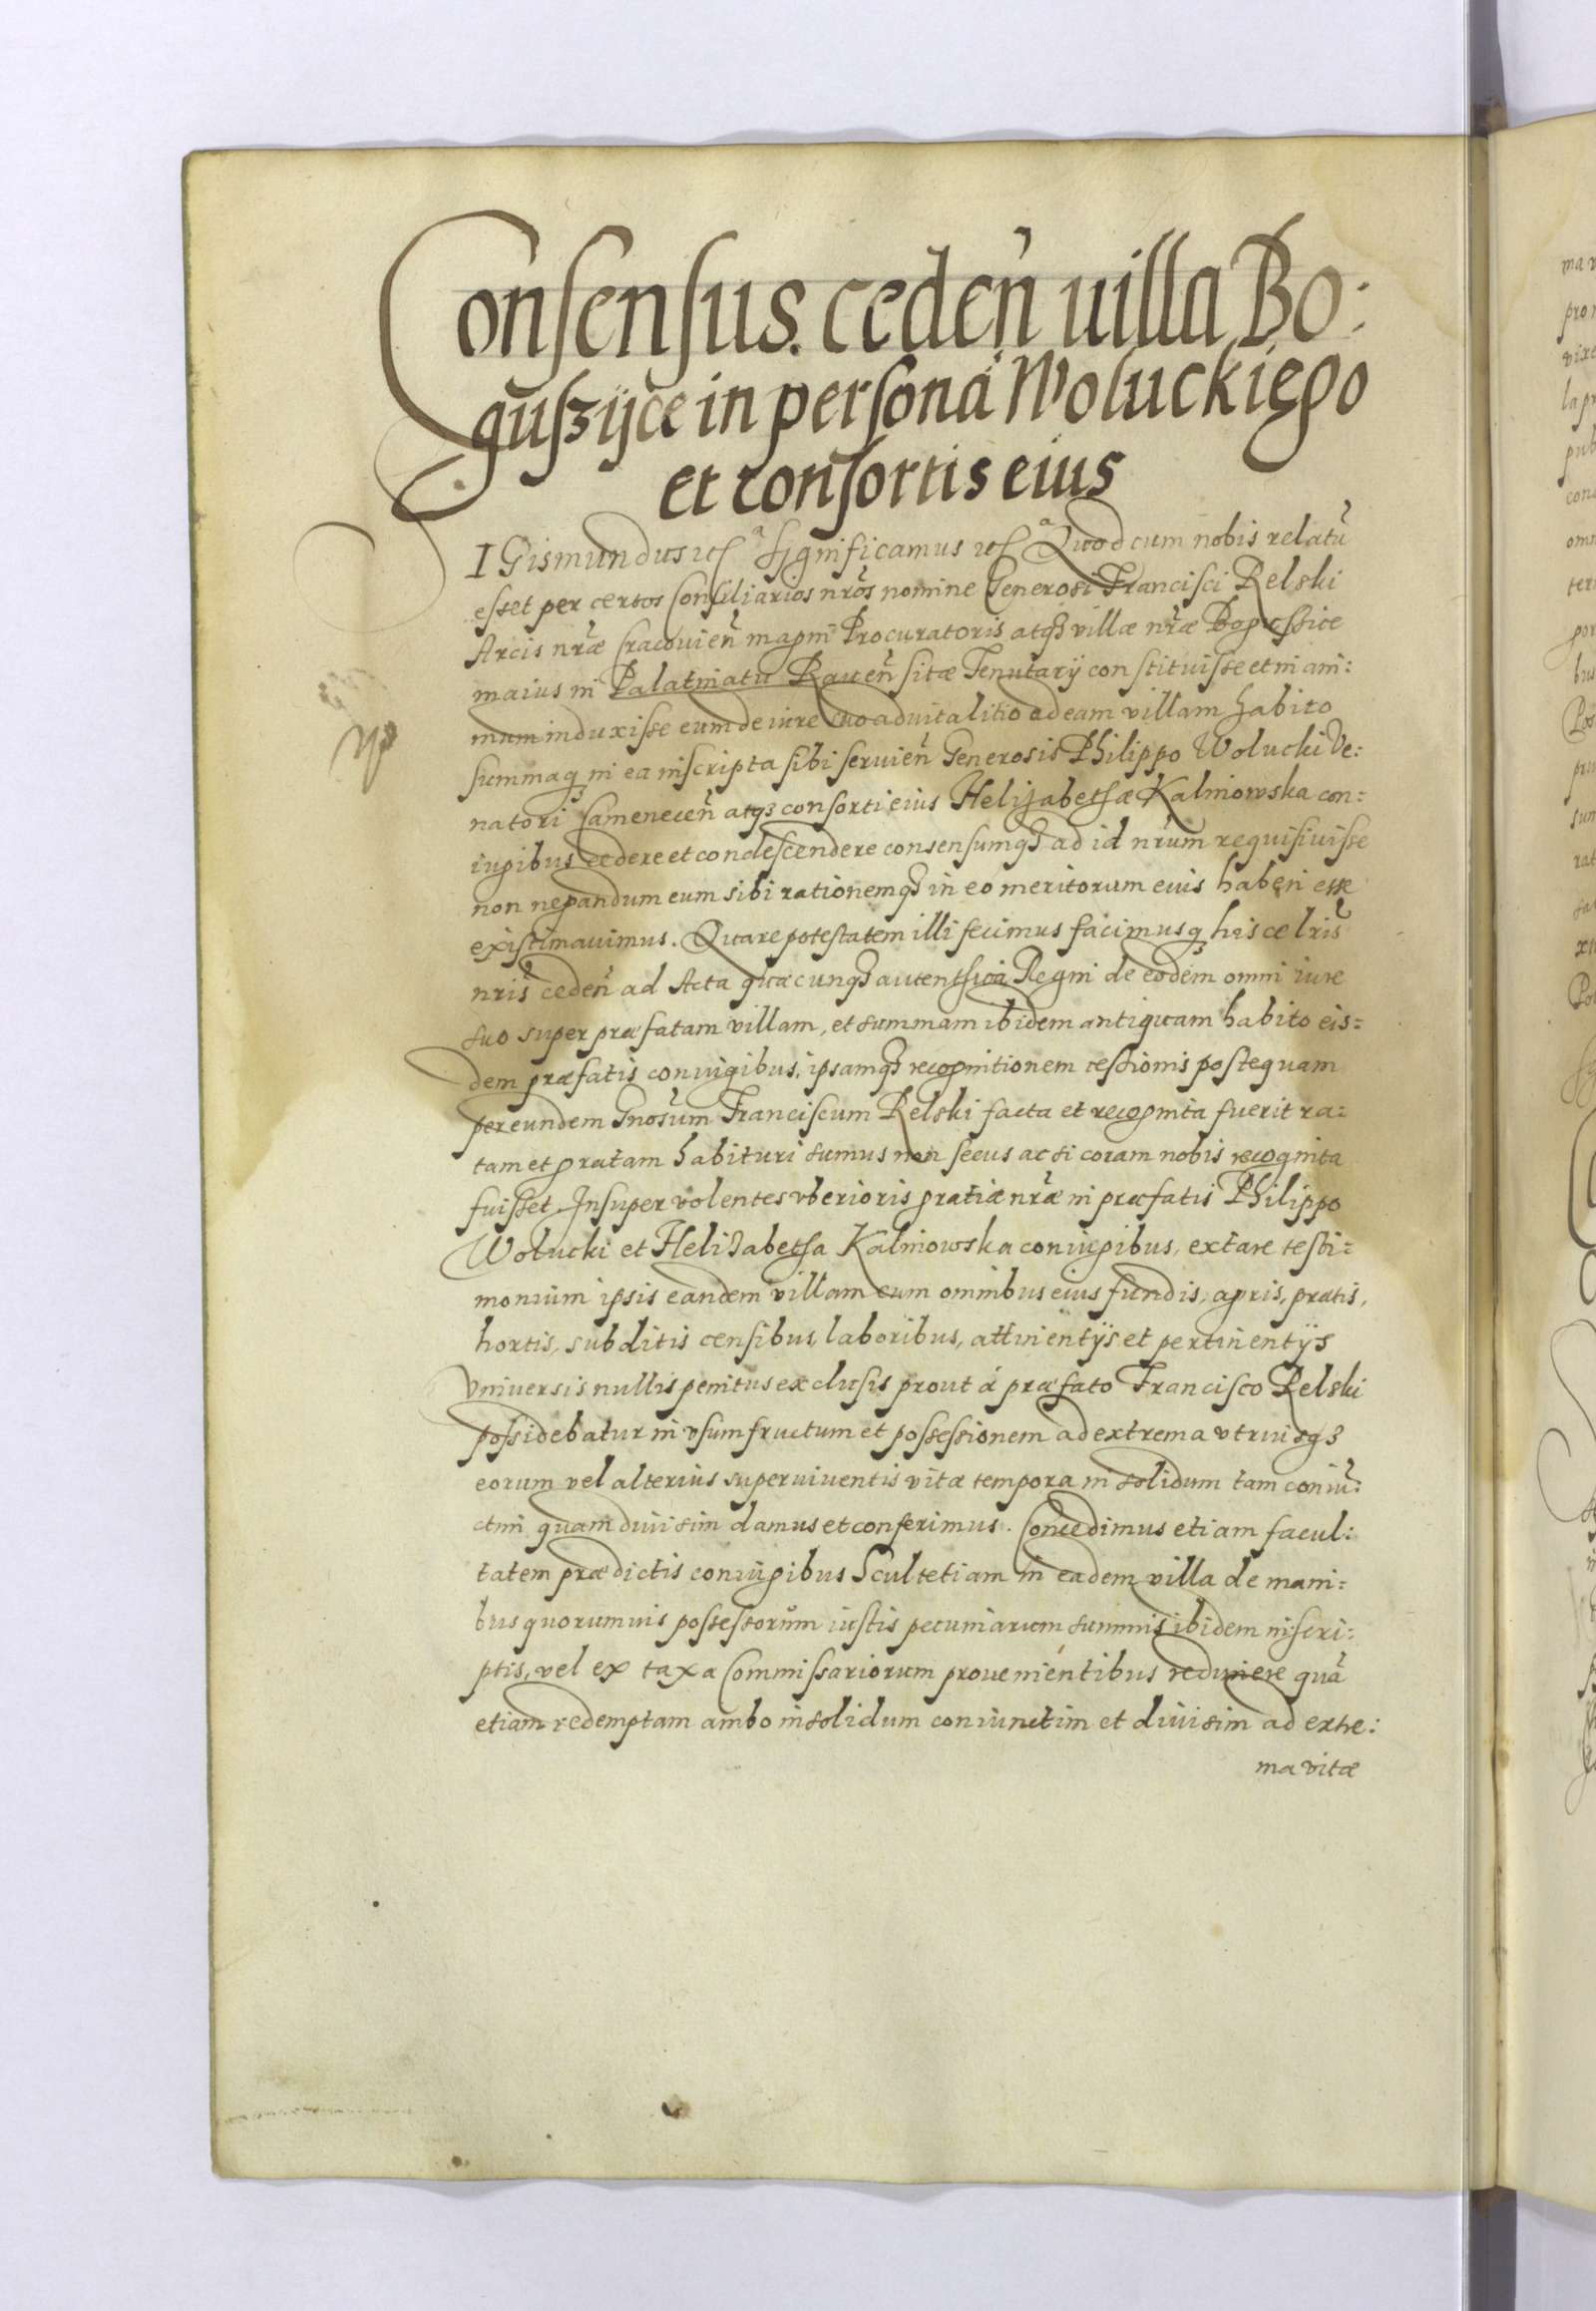 Consensus. cedeñ uilla Bo:
guszÿce in personã Woluckiego
et consortis eius
SIGismundus etc. Significamus etc. Quod cum nobis relatũ
esset per certos Consiliarios nr̃os nomine Generosi Francisci Relski
Arcis nr̃æ Cracovieñ magni Procuratoris atq₃ villæ nr̃æ Bogussice
maius in Palatinatu Raueñ sitæ Tenutarij constituisse et in ani:
mum induxisse eum de iure suo aduitalitio ad eam villam habito
summaq₃ in ea inscripta sibi seruieñ Generosis Philippo Wolucki Ve:
natori Cameneceñ atq₃ consorti eius Helizabethæ Kalinowska con:
iugibus cedere et condescendere consensumq₃ ad id nr̃um requisiuisse
non negandum eum sibi rationemq₃ in eo meritorum eius haberi esse
existimauimus. Quare potestatem illi fecimus facimusq₃ hisce lr̃is
nr̃is cedeñ ad Acta quæcunq₃ autenthica Regni de eodem omni iure
suo super præfatam villam, et summam ibidem antiquam habito eis=
dem præfatis coniugibus, ipsamq₃ recognitionem cessionis postequam
per eundem Gnosũm Franciscum Relski facta et recognita fuerit ra=
tam et gratam habituri sumus non secus ac si coram nobis recognita
fuisset. Insuper volentes vberioris gratiæ nr̃æ in præfatis Philippo
Wolucki et Helizabetha Kalinowska coniugibus, extare testi=
monium ipsis eandem villam cum omnibus eius fundis, agris, pratis,
hortis, subditis censibus, laboribus, attinentijs et pertinentijs
vniuersis nullis penitus exclusis prout á præfato Francisco Relski
possidebatur in vsumfructum et possessionem ad extrema vtriusq₃
eorum vel alterius superuiuentis vitæ tempora in solidum tam coniũ:
ctim quam diuisim damus et conferimus. Concedimus etiam facul:
tatem prædictis coniugibus Scultetiam in eadem villa de mani=
bus quorumuis possessorum iustis pecuniarum summis ibidem inscri=
ptis, vel ex taxa Commissariorum prouenientibus redimere quã
etiam redemptam ambo in solidum coniunctim et diuisim ad extre:
ma vitæ